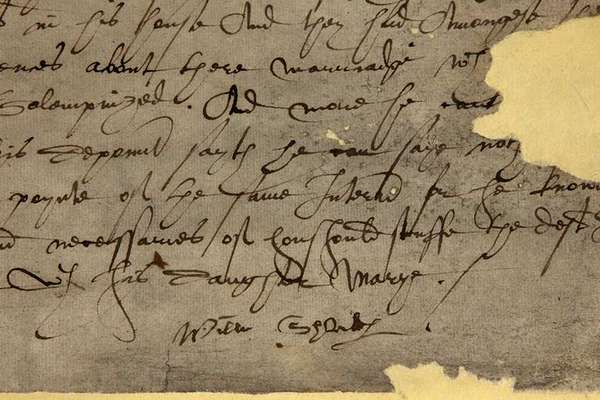 in his house And they had Amongest the
ences about there marriadge wch
Solempnized . And more he cann
his deponent sayth he can saye noth
poynte of the same Interr for he know
nd necessaries of houshould stuffe the deft
wth his daughter Marye .
Willm Shakp